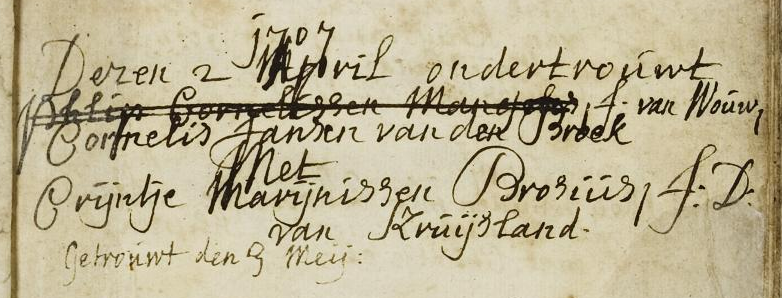 1707
Dezen 2 April ondertrouwt
Philip Cornelissen J. van Wouw,
Cornelis Jansen van den Broek
Met
Crijntje Marijnissen Brosius, J: D:
van Kruijsland.
Getrouwt den 3 Meij: